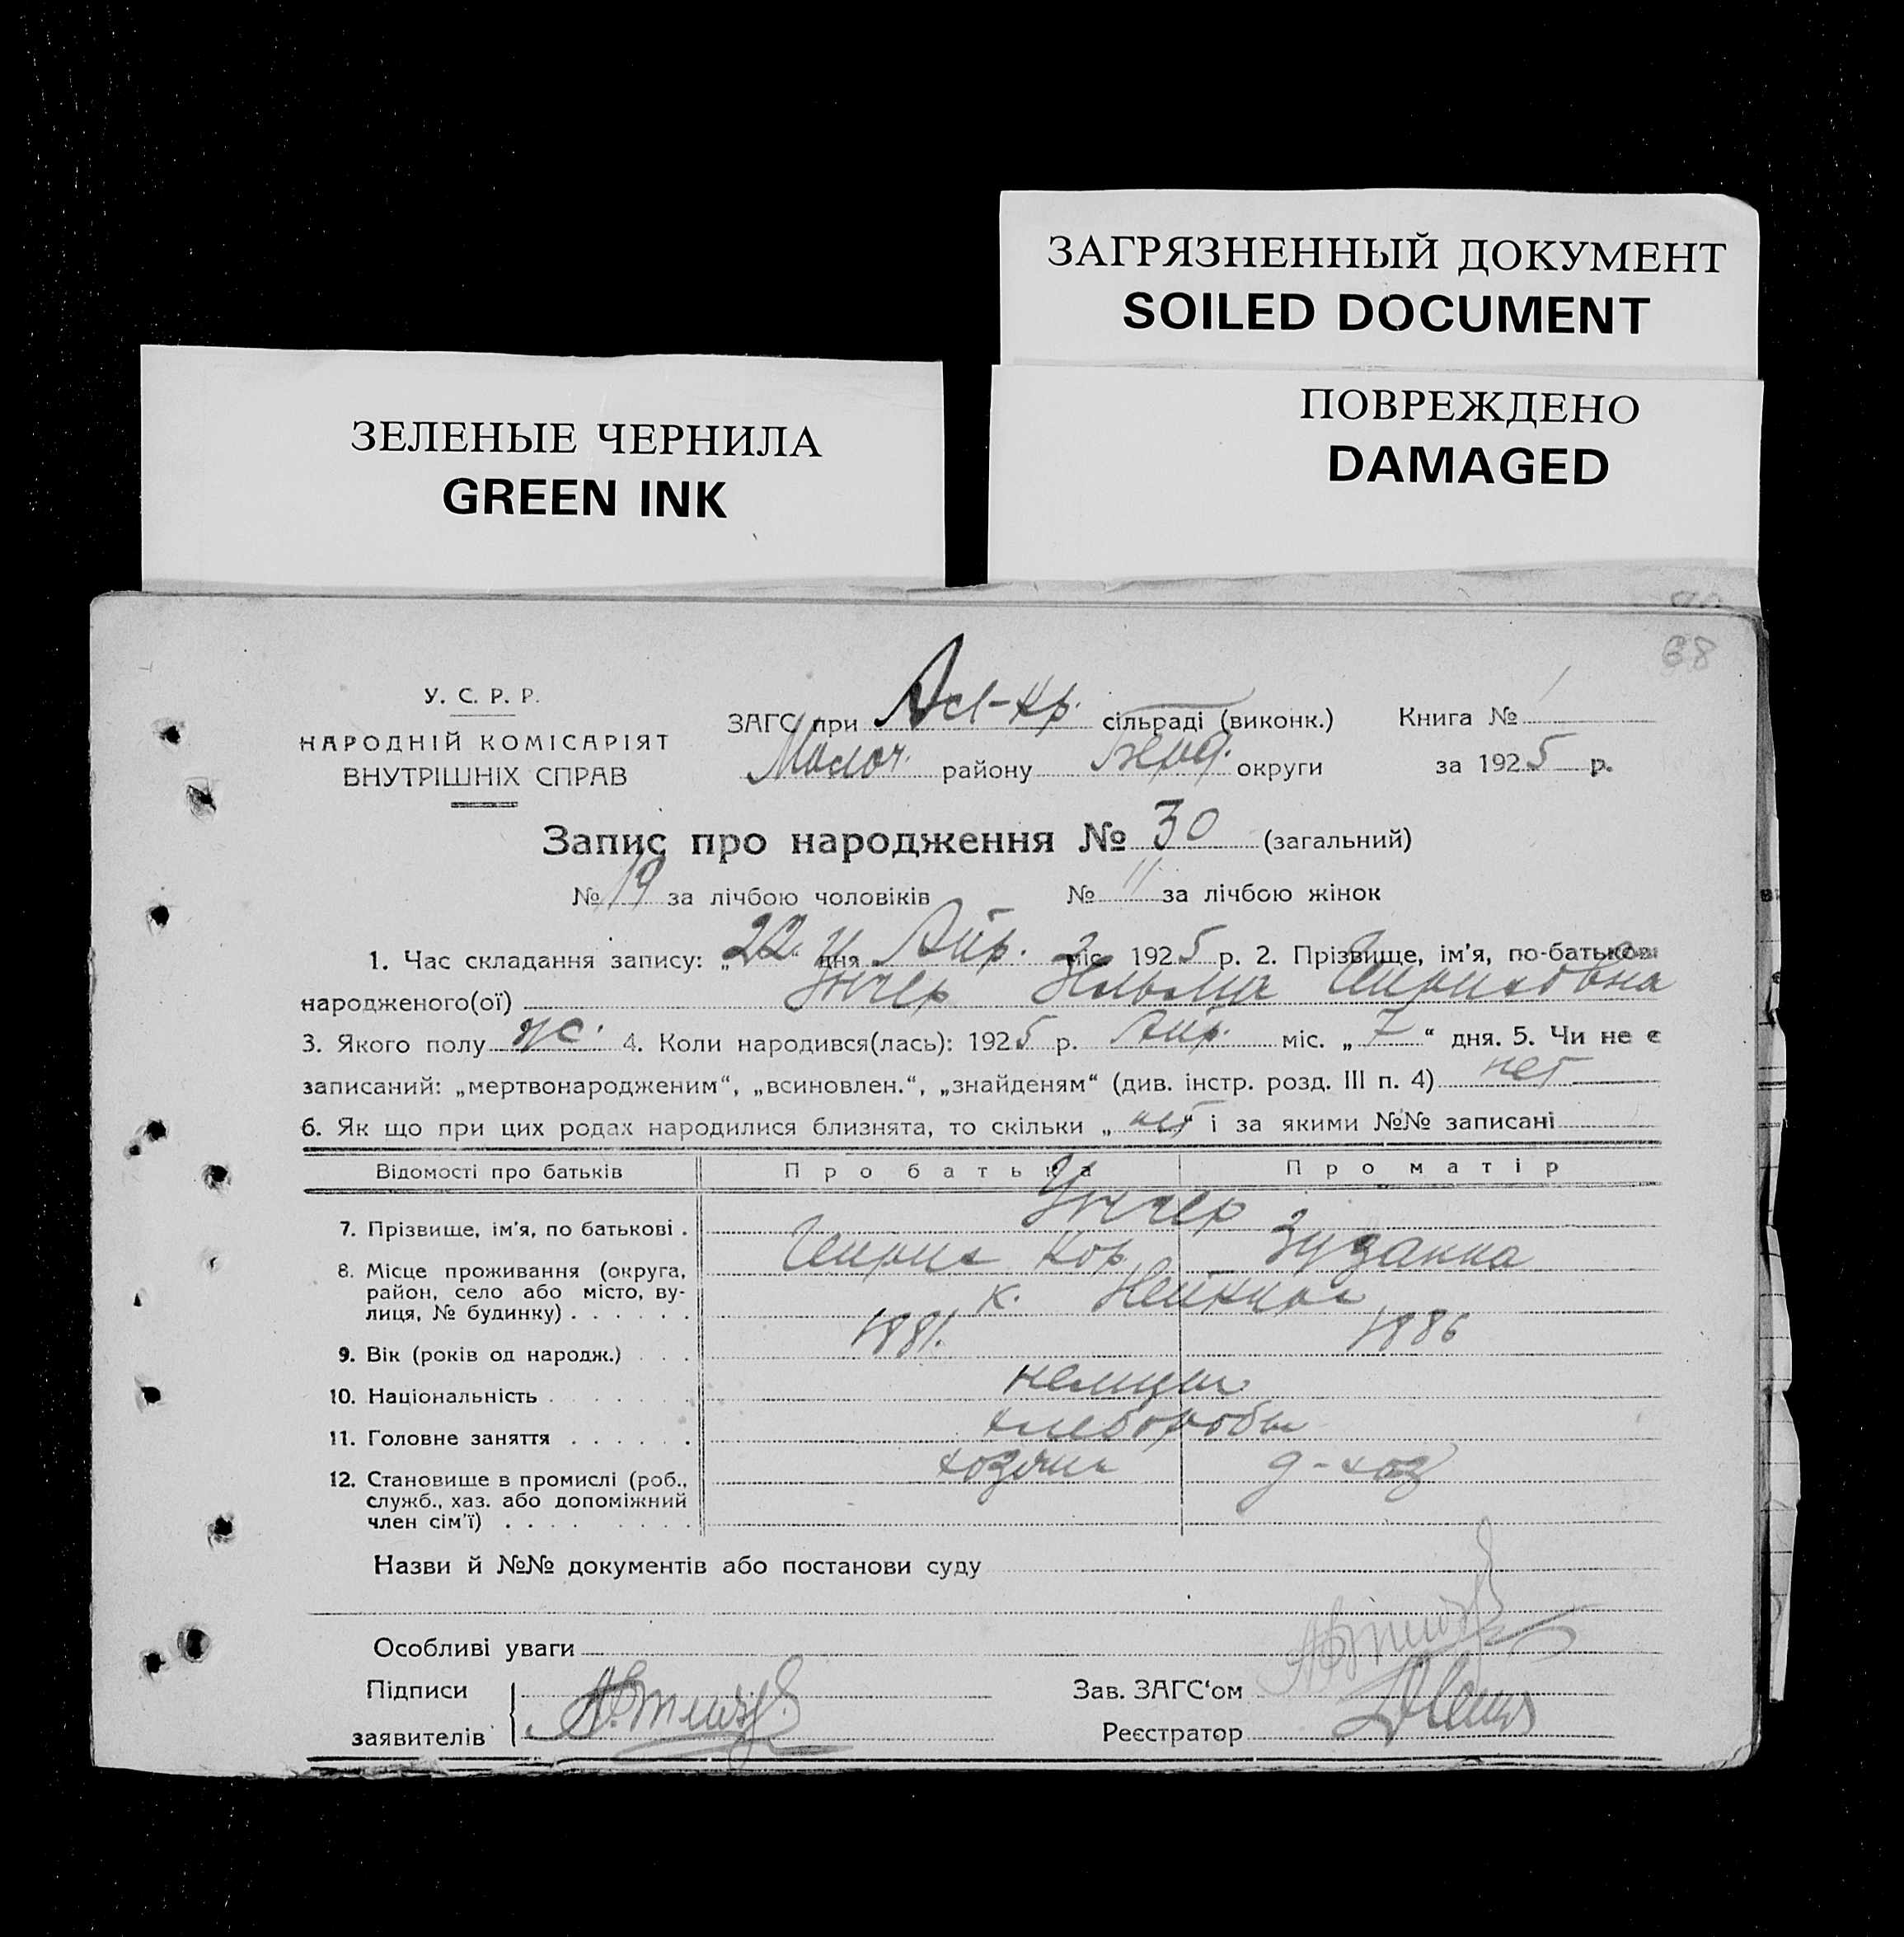 ЗАГРЯЗНЕННЫЙ ДОКУМЕНТ
SOILED DOCUMENT
ЗЕЛЕНЫЕ ЧЕРНИЛА
GREEN INK
ПОВРЕЖДЕНО
DAMAGED
38
У. С. Р. Р.
НАРОДНІЙ КОМІСАРІЯТ
ВНУТРІШНІХ СПРАВ
ЗАГС при сільраді (виконк.) Книга № 1
Молоч. району Берд. округи за 1925 р.
Запис про народження № 30 (загальний)
№ 19 за лічбою чоловіків № 11 за лічбою жінок
1. Час складання запису: „22 дня Апр. міс. 1925 р. 2. Прізвище, ім'я, по-батькові
народженого(ої)
3. Якого полу ж. 4. Коли народився(лась): 1925 р. Апр. міс. „7“ дня. 5. Чи не є
записаний: „мертвонародженим“, „всиновлен.“, „знайденям“ (див. інстр. розд. III п. 4) нет
6. Як що при цих родах народилися близнята, то скільки „нет“ і за якими №№ записані
Відомості про батьків Про батька Про матір
7. Прізвище, ім'я, по батькові .
Зузанна
8. Місце проживання (округа,
район, село або місто, ву-
лиця, № будинку) . . . . . .
к.
9. Вік (років од народж.) . . . 1881. 1886
10. Національність . . . . . . . немцы
11. Головне заняття . . . . . . хлеборобы
12. Становище в промислі (роб., хозяин д-хоз
служб., хаз. або допоміжний
член сім'ї) . . . . . . . .
Назви й №№ документів або постанови суду
Особливі уваги
Підписи
заявителів
Зав. ЗАГС'ом
Реєстратор